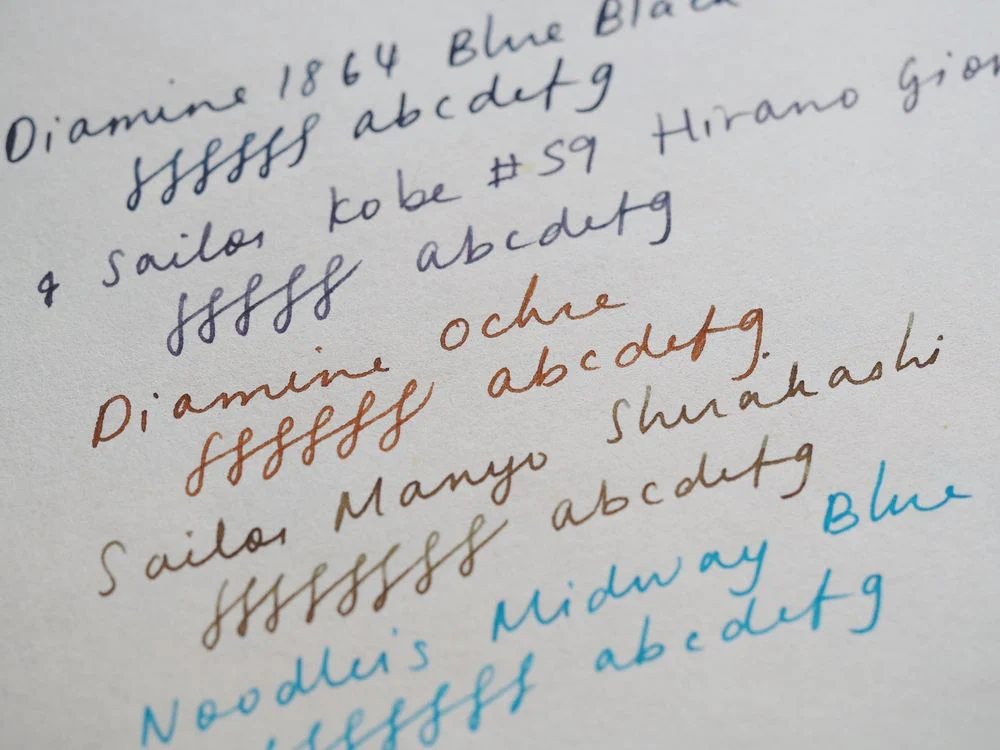 Diamine 1864 Blue Black
ffffff abcdefg
& Sailor Kobe #59 Hirano Gion
fffff abcdefg
Diamine Ochre
ffffff abcdefg
Sailor Manyo Shirakashi
ffffffff abcdefg
Noodler's Midway Blue
fffffff abcdefg